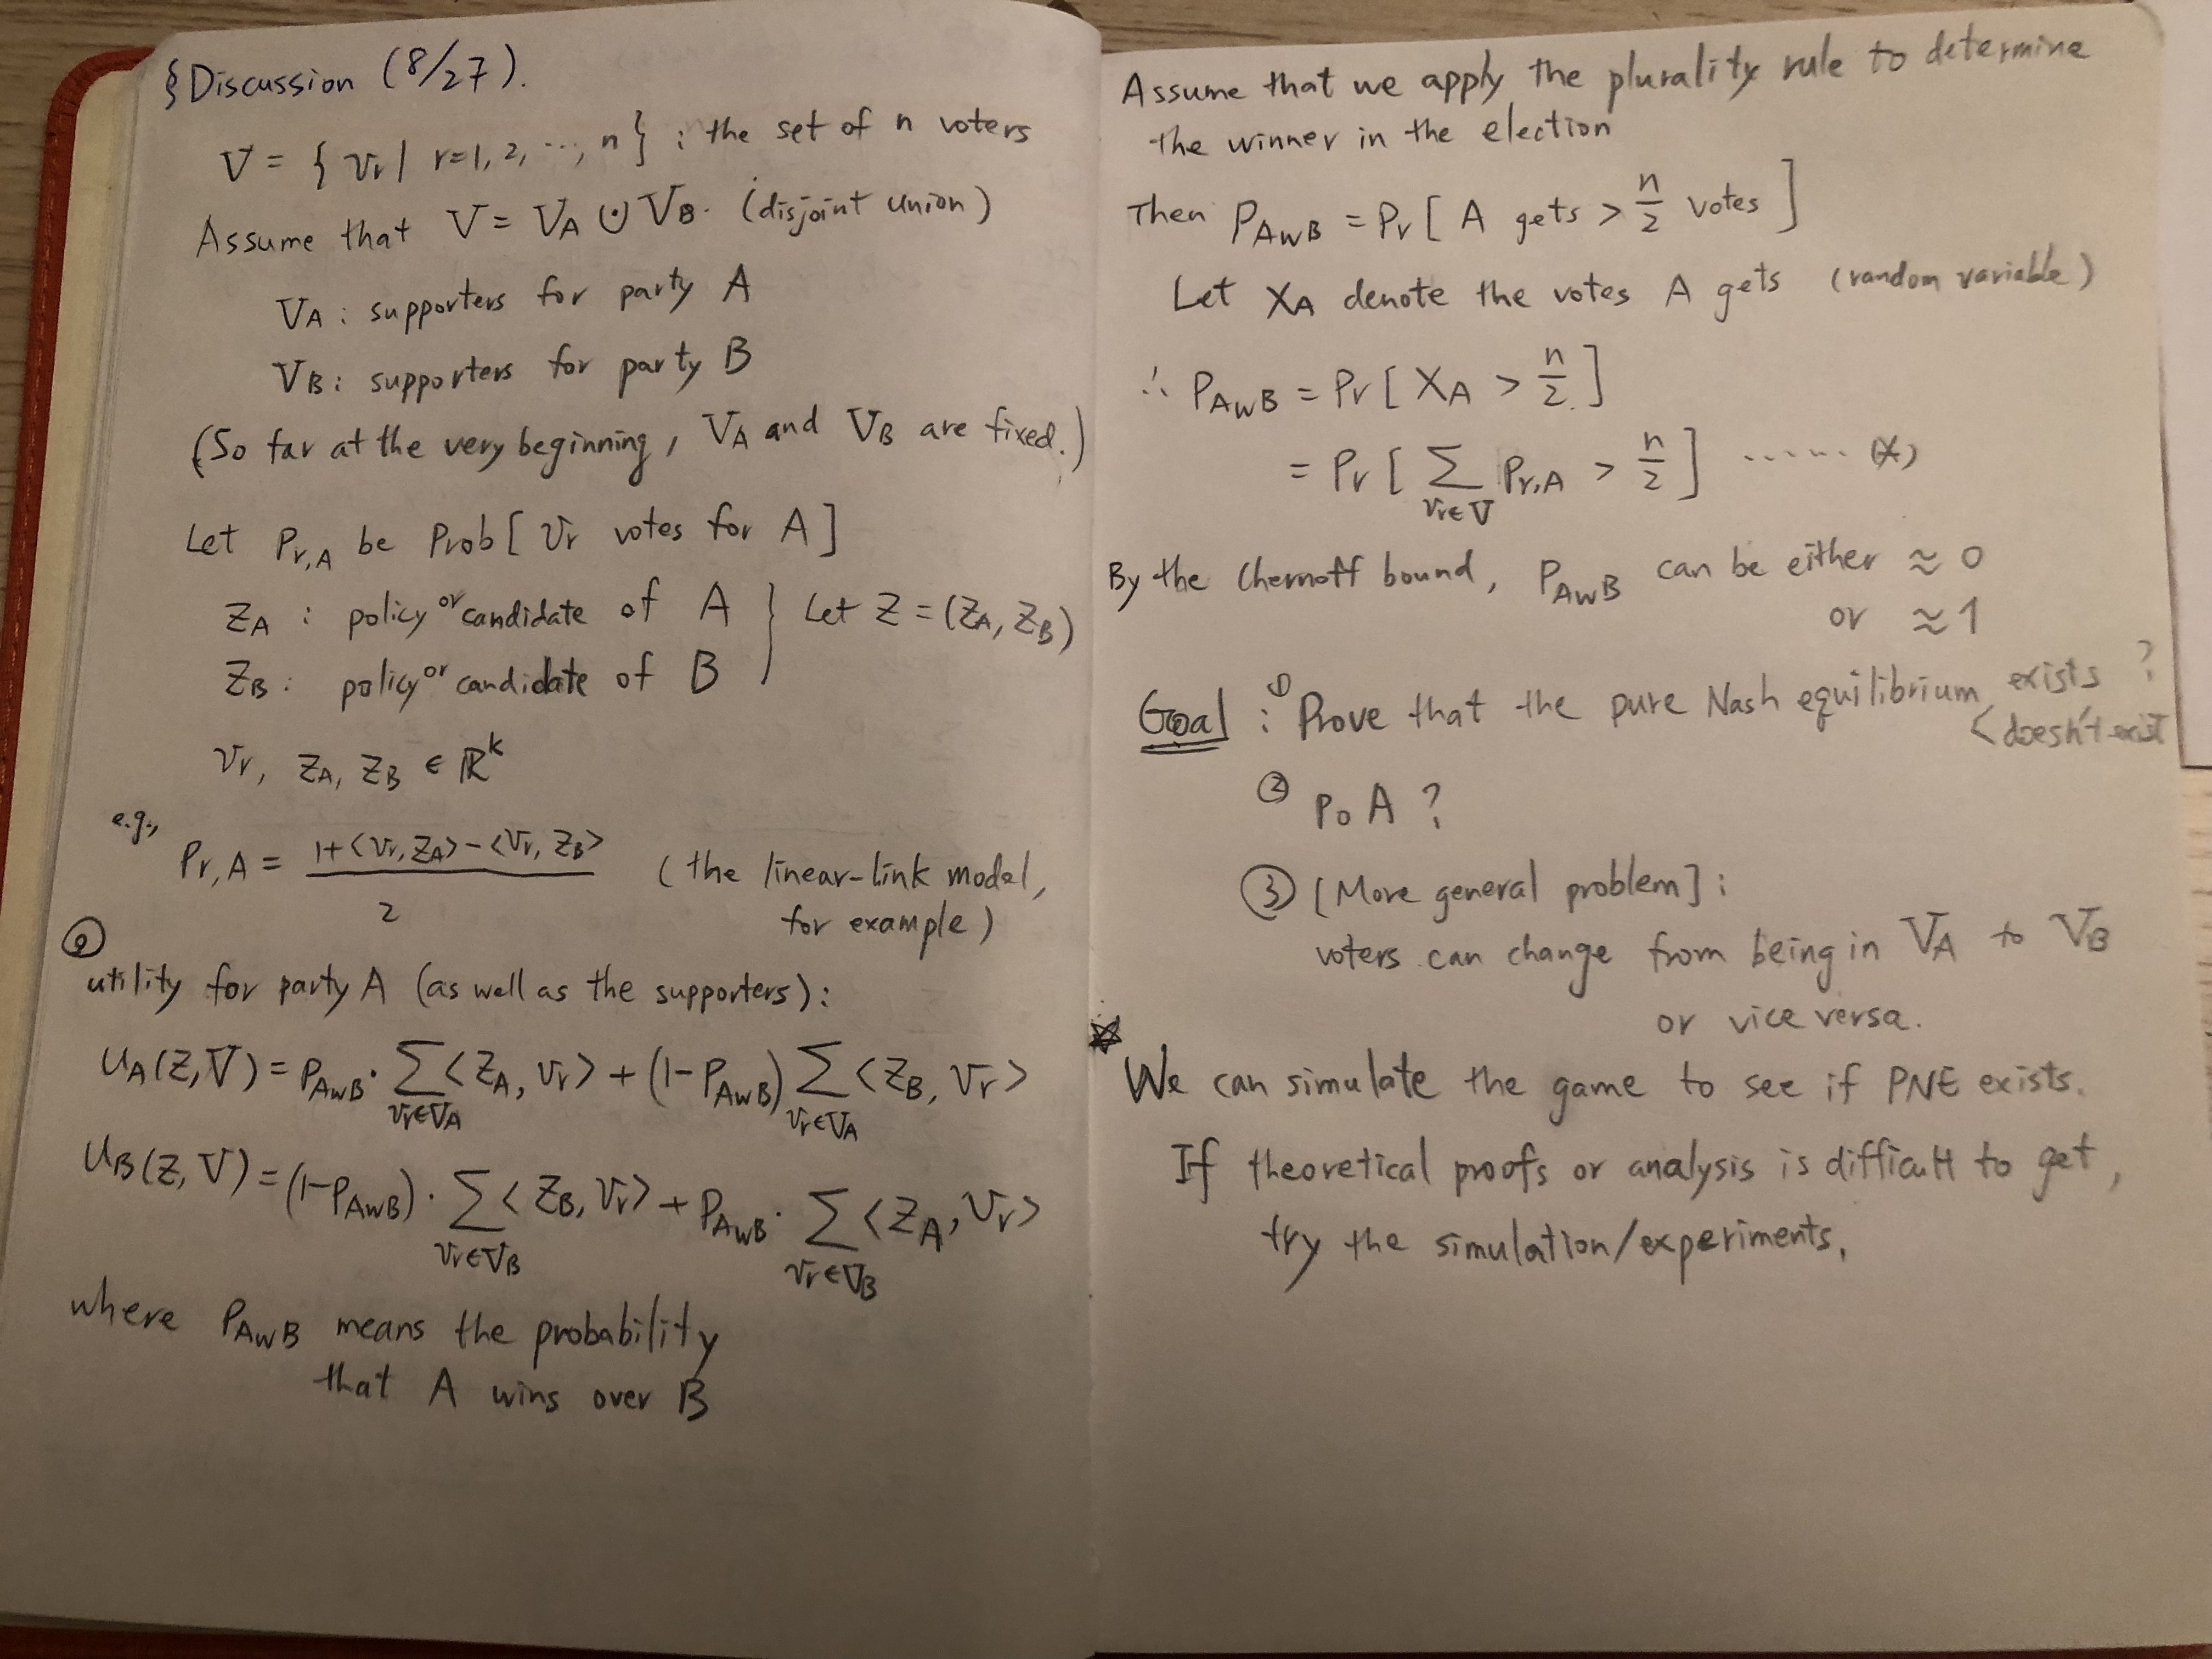 § Discussion (8/27).
V = { vr | r=1, 2, ..., n } : the set of n voters
Assume that V = VA ⊍ VB. (disjoint union)
VA : supporters for party A
VB : supporters for party B
(So far at the very beginning, VA and VB are fixed.)
Let Pr,A be Prob[ vr votes for A ]
ZA : policy or candidate of A } Let Z = (ZA, ZB)
ZB : policy or candidate of B
vr, ZA, ZB ∈ ℝ^k
e.g., Pr,A = (1+<vr,ZA>-<vr,ZB>)/2 (the linear-link model,
for example)
utility for party A (as well as the supporters):
UA(Z,V) = PAwB · Σ_{vr∈VA} <ZA, vr> + (1-PAwB) Σ_{vr∈VA} <ZB, vr>
UB(Z,V) = (1-PAwB) · Σ_{vr∈VB} <ZB, vr> + PAwB · Σ_{vr∈VB} <ZA, vr>
where PAwB means the probability
that A wins over B
Assume that we apply the plurality rule to determine
the winner in the election
Then PAwB = Pr[ A gets > n/2 votes ]
Let XA denote the votes A gets (random variable)
∴ PAwB = Pr[ XA > n/2 ]
= Pr[ Σ_{vr∈V} Pr,A > n/2 ] ...... (*)
By the Chernoff bound, PAwB can be either ≈ 0
or ≈ 1
Goal : ① Prove that the pure Nash equilibrium exists ?
< doesn't exist
② PoA ?
③ [More general problem] :
voters can change from being in VA to VB
or vice versa.
☆ We can simulate the game to see if PNE exists.
If theoretical proofs or analysis is difficult to get,
try the simulation/experiments.